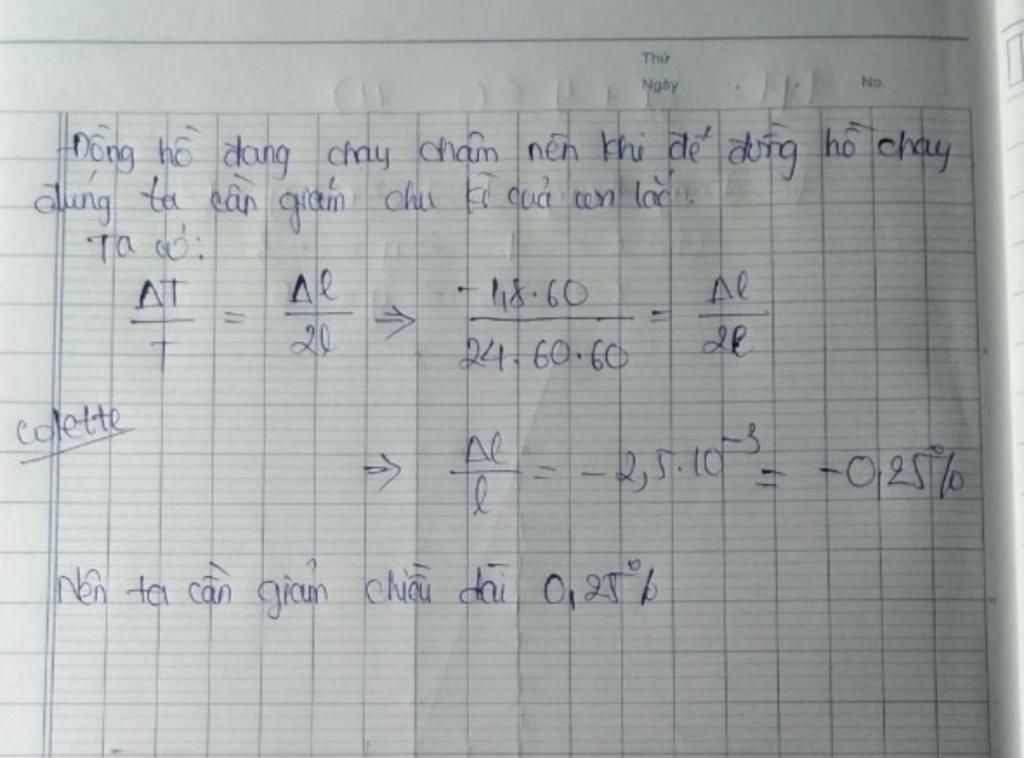 Thứ
Ngày No.
Đồng hồ đang chạy chậm nên khi để đồng hồ chạy
đúng ta cần giảm chu kì quả con lắc.
Ta có:
ΔT/T = Δl/2l => -1,8.60/24.60.60 = Δl/2l
colette
=> Δl/l = -2,5.10^-3 = -0,25%
Nên ta cần giảm chiều dài 0,25%